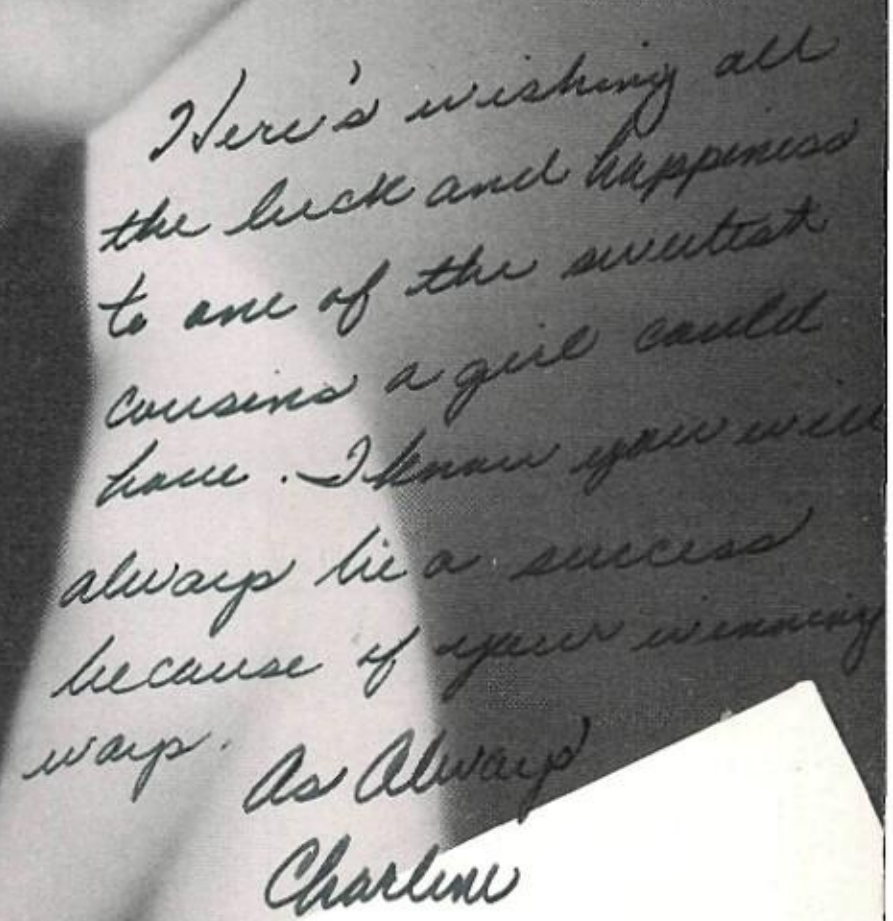 Here's wishing all
the luck and happiness
to one of the sweetest
cousins a girl could
have. I know you will
always be a success
because of your winning
ways.
As Always
Charlene